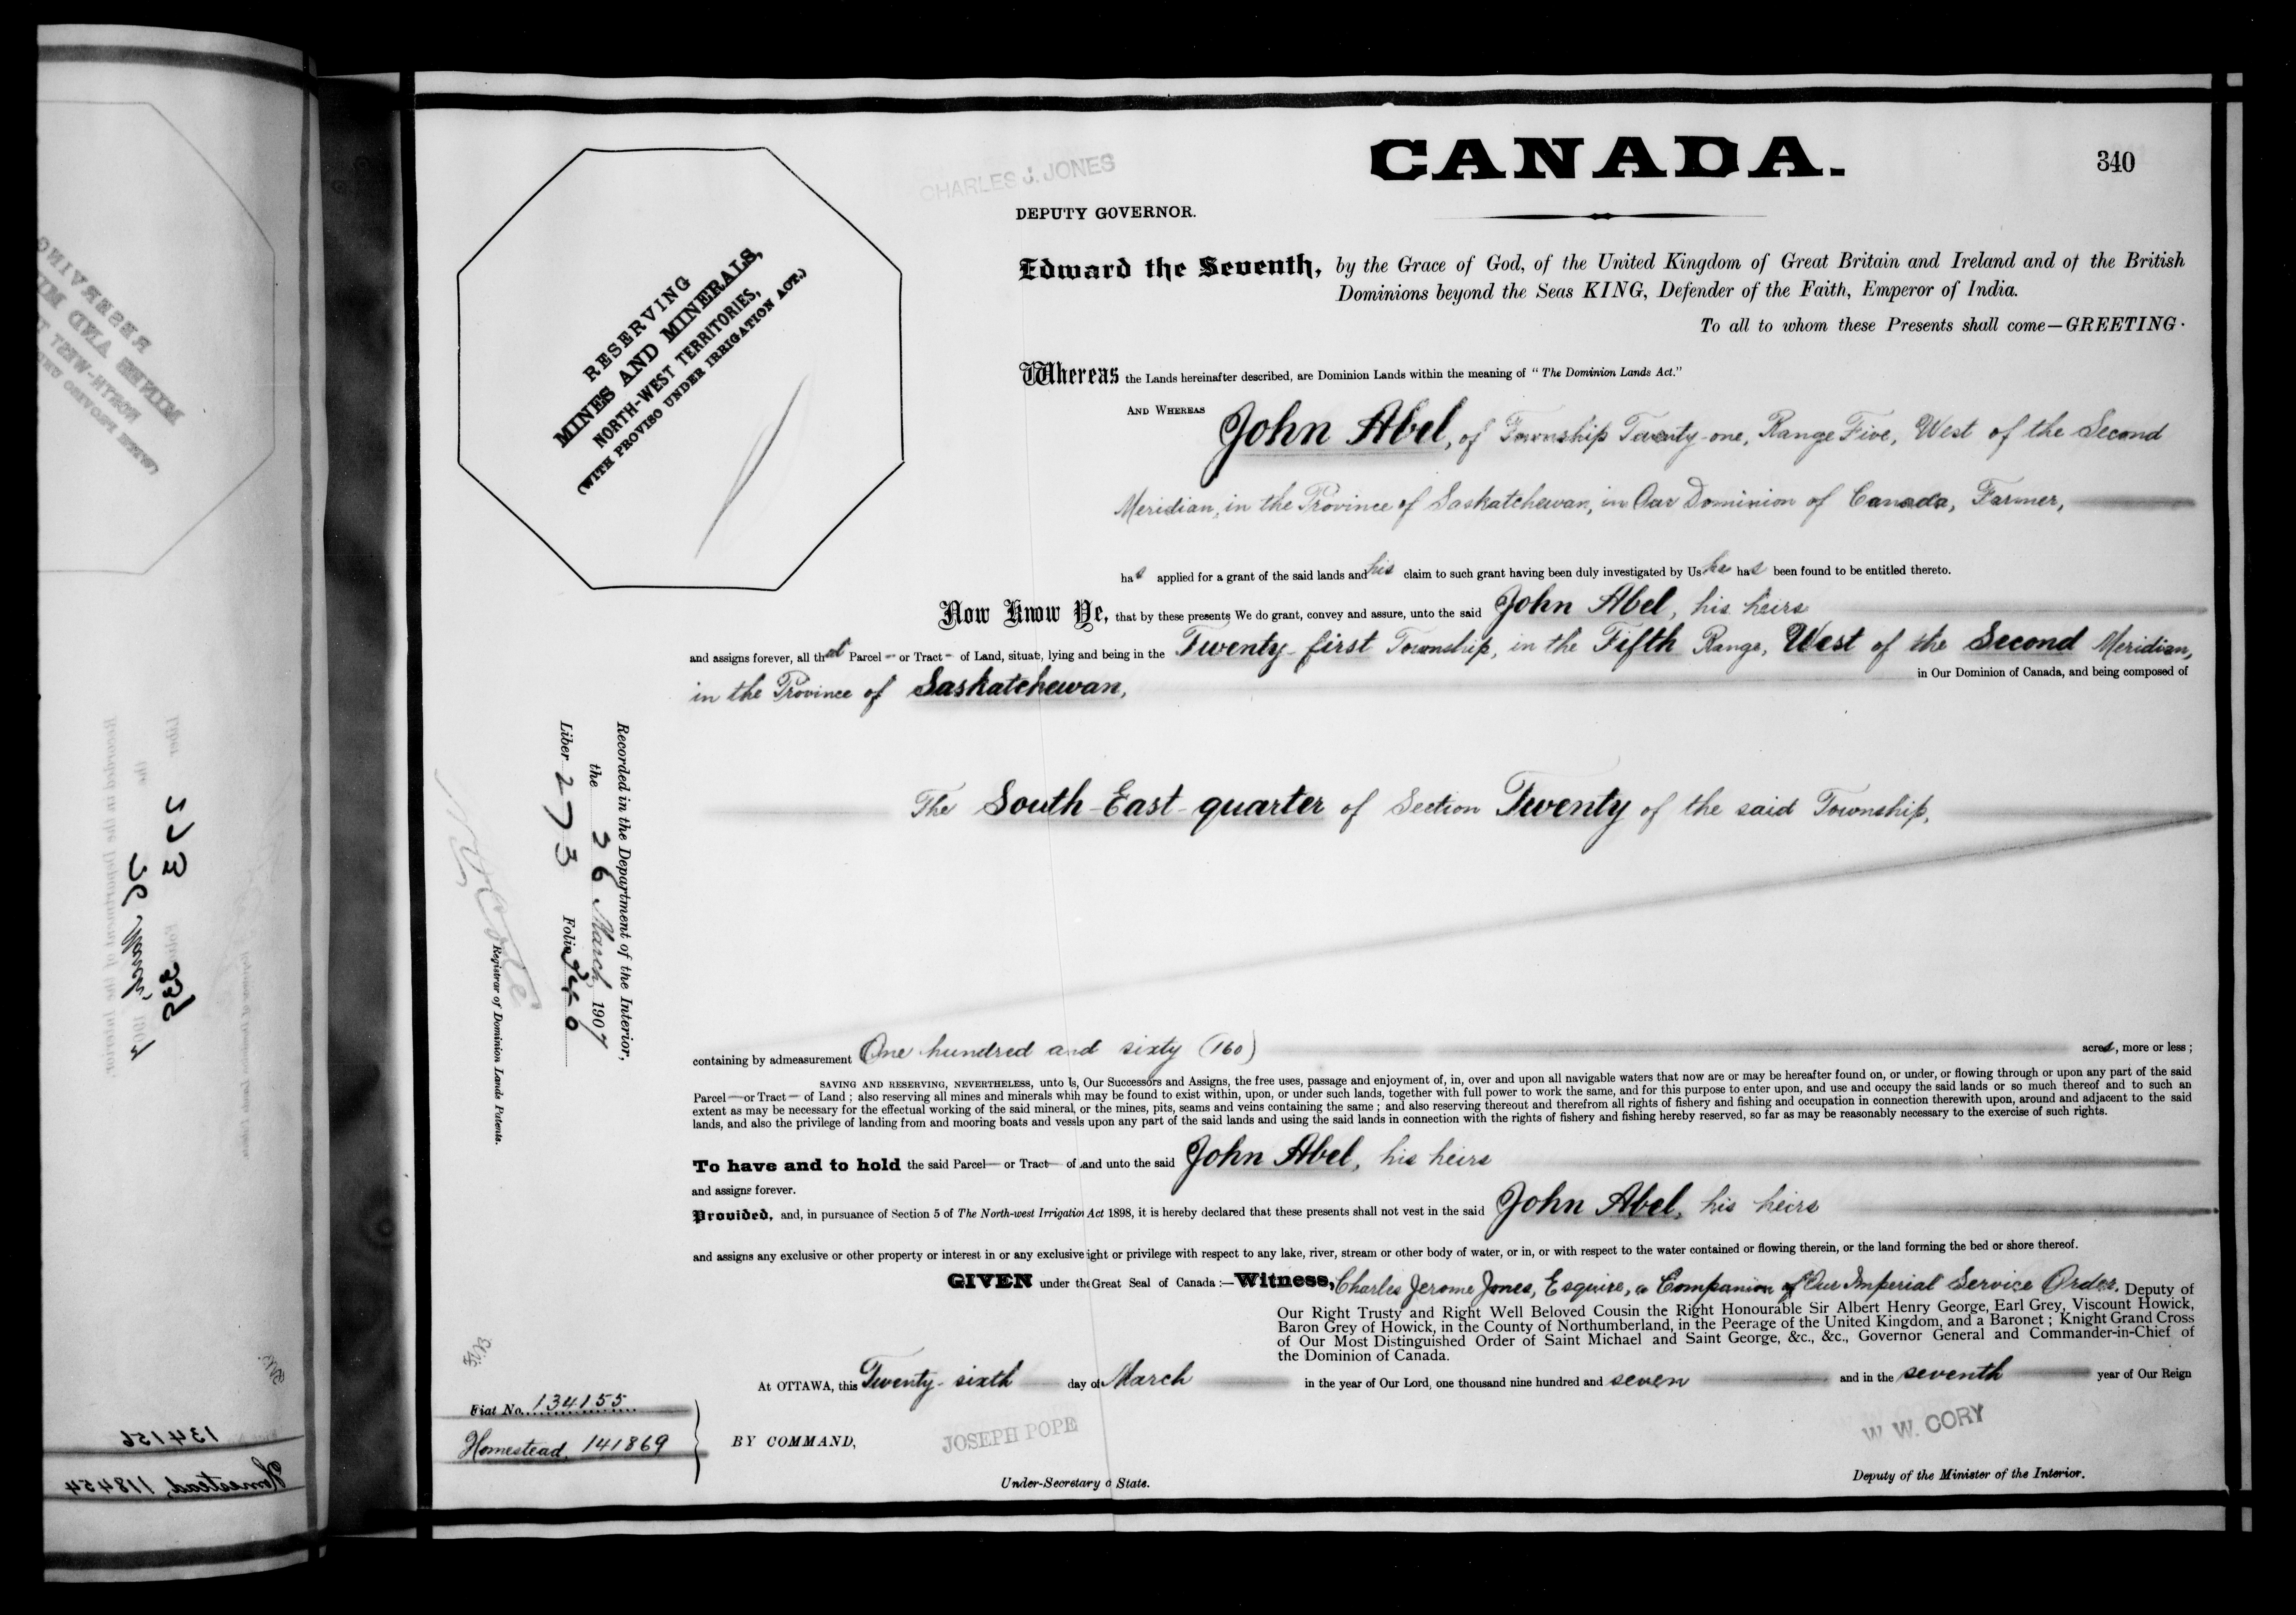 CANADA.
340
CHARLES J. JONES
DEPUTY GOVERNOR.
RESERVING
MINES AND MINERALS,
NORTH-WEST TERRITORIES,
(WITH PROVISO UNDER IRRIGATION ACT.)
Edward the Seventh, by the Grace of God, of the United Kingdom of Great Britain and Ireland and of the British
Dominions beyond the Seas KING, Defender of the Faith, Emperor of India.
To all to whom these Presents shall come—GREETING.
Whereas the Lands hereinafter described, are Dominion Lands within the meaning of "The Dominion Lands Act."
AND WHEREAS John Abel, of Township Twenty-one, Range Five, West of the Second
Meridian, in the Province of Saskatchewan, in Our Dominion of Canada, Farmer,
has applied for a grant of the said lands and his claim to such grant having been duly investigated by Us he has been found to be entitled thereto.
Now Know Ye, that by these presents We do grant, convey and assure, unto the said John Abel, his heirs
and assigns forever, all that Parcel or Tract of Land, situate, lying and being in the Twenty-first Township, in the Fifth Range, West of the Second Meridian,
in the Province of Saskatchewan, in Our Dominion of Canada, and being composed of
The South-East-quarter of Section Twenty of the said Township,
Recorded in the Department of the Interior,
the 26 March 1907
Liber 273 Folio 340
Registrar of Dominion Lands Patents.
containing by admeasurement One hundred and sixty (160) acres, more or less;
SAVING AND RESERVING, NEVERTHELESS, unto Us, Our Successors and Assigns, the free uses, passage and enjoyment of, in, over and upon all navigable waters that now are or may be hereafter found on, or under, or flowing through or upon any part of the said
Parcel—or Tract—of Land; also reserving all mines and minerals whih may be found to exist within, upon, or under such lands, together with full power to work the same, and for this purpose to enter upon, and use and occupy the said lands or so much thereof and to such an
extent as may be necessary for the effectual working of the said mineral, or the mines, pits, seams and veins containing the same; and also reserving thereout and therefrom all rights of fishery and fishing and occupation in connection therewith upon, around and adjacent to the said
lands, and also the privilege of landing from and mooring boats and vessls upon any part of the said lands and using the said lands in connection with the rights of fishery and fishing hereby reserved, so far as may be reasonably necessary to the exercise of such rights.
To have and to hold the said Parcel— or Tract— of and unto the said John Abel, his heirs
and assigns forever.
Provided, and, in pursuance of Section 5 of The North-west Irrigation Act 1898, it is hereby declared that these presents shall not vest in the said John Abel, his heirs
and assigns any exclusive or other property or interest in or any exclusive ight or privilege with respect to any lake, river, stream or other body of water, or in, or with respect to the water contained or flowing therein, or the land forming the bed or shore thereof.
GIVEN under the Great Seal of Canada:—Witness, Charles Jerome Jones, Esquire, a Companion of Our Imperial Service Order, Deputy of
Our Right Trusty and Right Well Beloved Cousin the Right Honourable Sir Albert Henry George, Earl Grey, Viscount Howick,
Baron Grey of Howick, in the County of Northumberland, in the Peerage of the United Kingdom, and a Baronet; Knight Grand Cross
of Our Most Distinguished Order of Saint Michael and Saint George, &c., &c., Governor General and Commander-in-Chief of
the Dominion of Canada.
At OTTAWA, this Twenty-sixth day of March in the year of Our Lord, one thousand nine hundred and seven and in the seventh year of Our Reign
Fiat No. 134155
Homestead, 141869
BY COMMAND,
JOSEPH POPE
Under-Secretary o State.
W. W. CORY
Deputy of the Minister of the Interior.
134156
Homestead, 118454